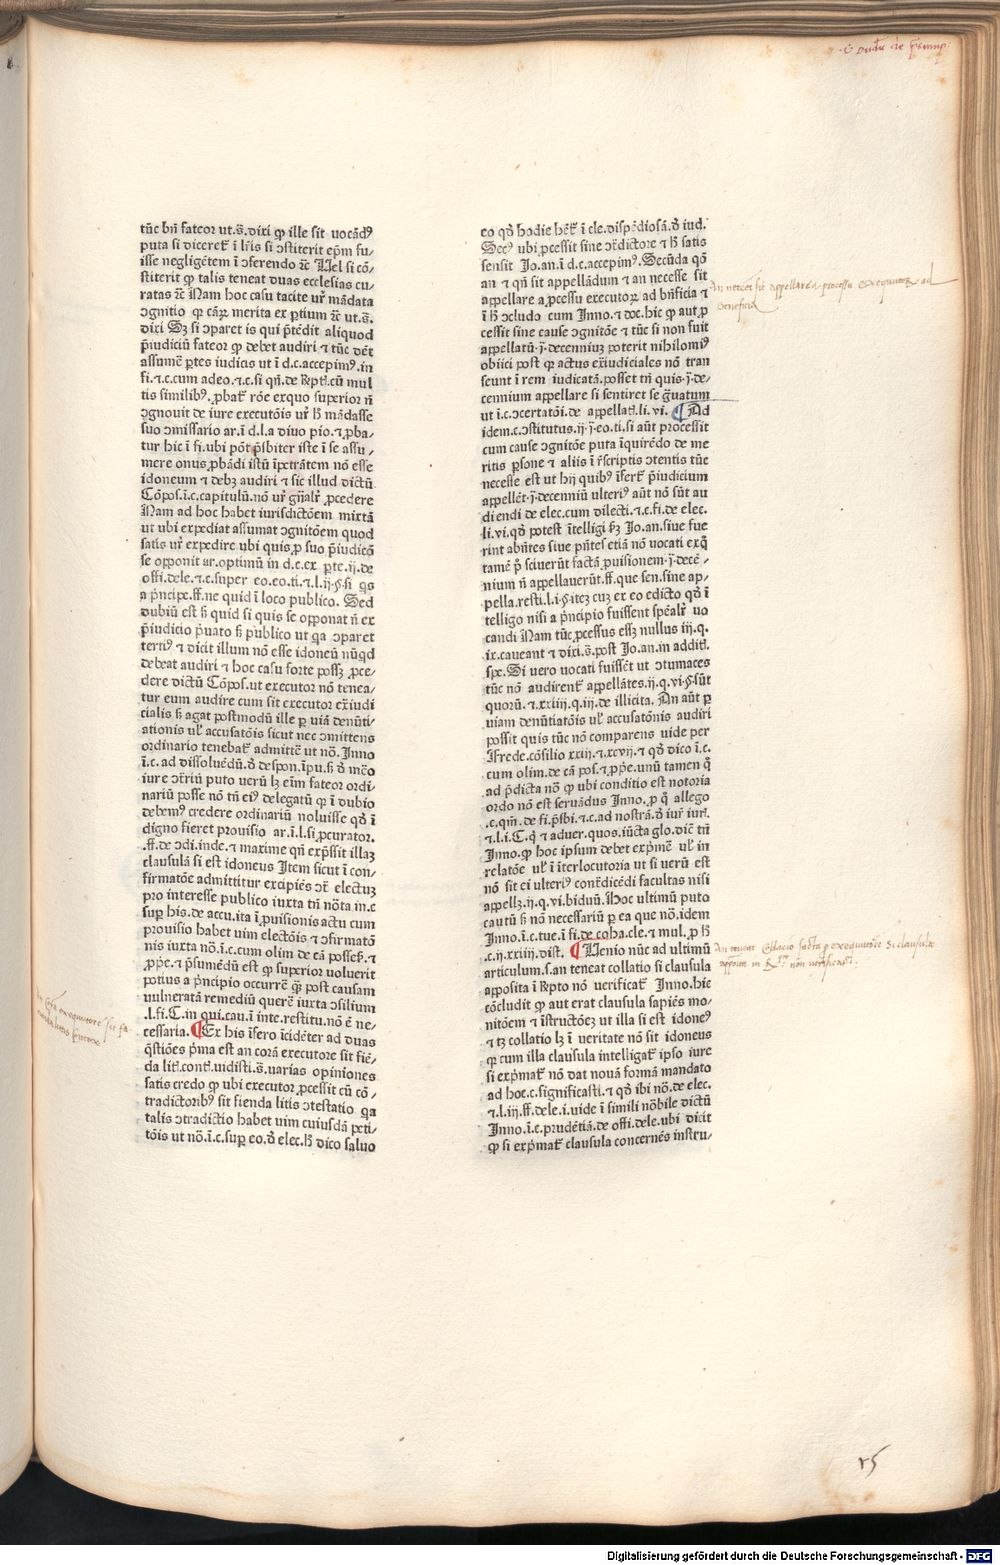 tūc bn̄ fateor ut.s̄.dixi ꝙ ille sit vocād⁹
puta si diceret᷑ ī lr̄is si ↄstiterit ep̄m fu/
isse negligētem ī ↄferendo ꝛc̄ Uel si cō/
stiterit ꝙ talis teneat duas ecclesias cu/
ratas ꝛc̄ Nam hoc casu tacite ur̄ mādata
ↄgnitio ꝙ caꝝ merita ex ꝑtium ꝛc̄ ut.s̄.
dixi Sꝫ si ↄparet is qui p̄tēdit aliquod
p̄iudiciū fateor ꝙ debet audiri ⁊ tūc dēt
assumē ꝑtes iudicis ut ī d.c.accepim⁹.in
fi.⁊.c.cum adeo.⁊.c.si qn̄.de Rpt᷑.cū mul
tis similib⁹.ꝓbat᷑ rōe exquo superior n̄
ↄgnouit de iure executōis ur̄ h̄ mādasse
suo ↄmissario ar.ī d.l.a diuo pio.⁊ ꝓba/
tur hic ī fi.ubi pōt p̄sbiter iste ī se assu/
mere onus ꝓbādi istū īpetrātem nō esse
idoneum ⁊ debꝫ audiri ⁊ sic illud dictū
Cōpos.ī.c.capitulū.nō ur̄ gn̄alr̄ ꝓcedere
Nam ad hoc habet iurisdictōem mixtā
ut ubi expediat assumat ↄgnitōem quod
satis ur̄ expedire ubi quis ꝓ suo p̄iudicō
se opponit ar.optimū in d.c.ex ꝑte.ij.de
offi.dele.⁊.c.super eo.eo.ti.⁊ l.ij.§.si qs
a p̄ncipe.ff.ne quid ī loco publico. Sed
dubiū est h̄ quid si quis se opponat n̄ ex
p̄iudicio p̄uato ẜ publico ut qa ↄparet
terti⁹ ⁊ dicit illum nō esse idoneū nūqd
debeat audiri ⁊ hoc casu forte possꝫ ꝓce/
dere dictū Cōpos.ut executor nō tenea/
tur eum audire cum sit executor exiudi
cialis ẜ agat postmodū ille ꝑ uiā denūti/
ationis ul᷑ accusatōis sicut nec ↄmittens
ordinario tenebat᷑ admittē ut nō. Inno
ī.c. ad dissoluēdū.d̄ despon.īpu.ẜ d̄ mēo
iure ↄtr̄iū puto verū lꝫ eīm fateor ordi/
nariū posse nō tn̄ ei⁹ delegatū ꝙ ī dubio
debem⁹ credere ordinariū noluisse qd̄ ī
digno fieret prouisio ar.ī.l.si ꝓcurator.
.ff.de ↄdi.inde.⁊ maxime qn̄ exp̄ssit illaꝫ
clausulā si est idoneus Item sicut ī con/
firmatōe admittitur excipiēs ↄt᷑ electuꝫ
pro interesse publico iuxta tn̄ nōta in.c
suꝑ his.de accu.ita ī ꝓuisionis actu cum
prouisio habet uim electōis ⁊ ↄfirmatō
nis iuxta nō.ī.c.cum olim de cā possess̄.⁊
ꝓp̄e.⁊ p̄sumēdū est ꝙ superior voluerit
potius a p̄ncipio occurrē q̄ꝫ post causam
uulneratā remediū querē iuxta ↄsilium
.l.fi.C.in qui.cau.ī inte.restitu.nō ē ne/
cessaria. ¶Ex his īfero īcidēter ad duas
q̄stiōes p̄ma est an corā executore sit fiē/
da lit᷑.cont᷑.vidisti.s̄.varias opiniones
satis credo ꝙ ubi executor ꝓcessit cū cō/
tradictorib⁹ sit fienda litis ↄtestatio qa
talis ↄtradictio habet uim cuiusdā peti/
tōis ut nō.ī.c.suꝑ eo.d̄ elec.h̄ dico saluo
eo qd̄ hodie het᷑ ī cle.dispēdiosā.d̄ iud.
Sec⁹ ubi ꝓcessit sine ↄr̄dictore ⁊ h̄ satis
sensit Jo.an.ī d.c.accepim⁹.Secūda qō
an ⁊ qn̄ sit appellādum ⁊ an necesse sit
appellare a ꝓcessu executoꝝ ad bn̄ficia ⁊
ī h̄ ↄcludo cum Inno.⁊ doc.hic ꝙ aut ꝓ
cessit sine cause ↄgnitōe ⁊ tūc si non fuit
appellatū.ī.decenniuꝫ poterit nihilomi⁹
obiici post ꝙ actus exiudiciales nō tran
seunt ī rem iudicatā.posset tn̄ quis.ī.de/
cennium appellare si sentiret se gͣuatum
ut ī.c.ↄcertatōi.de appellat᷑.li.vi. ¶Ad
idem.c.ↄstitutus.ij.ī.eo.ti.si aūt processit
cum cause ↄgnitōe puta īquirēdo de me
ritis ꝑsone ⁊ aliis ī r̄scriptis ↄtentis tūc
necesse est ut hij quib⁹ īfert᷑ p̄iudicium
appellēt.ī.decenniū ulteri⁹ aūt nō sūt au
diendi de elec.cum dilecti.⁊.c.fi.de elec.
li.vi.qd̄ potest ītelligi ẜꝫ Jo.an.siue fue
rint abn̄tes siue p̄ntes etiā nō vocati exq̄
tamē p̄ sciuerūt factā ꝓuisionem.ī.decē/
nium n̄ appellauerūt.ff.que sen.sine ap/
pella.resti.l.i.§.iteꝫ cuꝫ ex eo edicto qd̄ ī
telligo nisi a p̄ncipio fuissent spēalr̄ uo
candi Nam tūc ꝓcessus essꝫ nullus iij.q.
ix.caueant ⁊ dixi.s̄.post Jo.an.in addit᷑.
spe̅. Si vero vocati fuissēt ut ↄtumaces
tūc nō audirent᷑ appellātes.ij.q.vi.§.sūt
quorū.⁊.xxiij.q.iij.de illicita. An aūt ꝑ
uiam denūtiatōis ul᷑ accusatōnis audiri
possit quis tūc nō comparens uide per
Ifrede.cōsilio xxiij.⁊.xcvij.⁊ qd̄ dico ī.c.
cum olim.de cā pos.⁊ ꝓp̄e.unū tamen q̄
ad p̄dicta nō ꝙ ubi conditio est notoria
ordo nō est seruādus Inno.ꝓ q̄ allego
.c.qm̄.de fi.p̄sbi.⁊.c.ad nostrā.d̄ iur᷑ iur᷑.
⁊.l.i.C.q̄ ⁊ aduer.quos.iūcta glo.dic̄ tn̄
Inno.ꝙ hoc ipsum debet exp̄mē ul᷑ in
relatōe ul᷑ ī īterlocutoria ut si verū est
nō sit ei ulteri⁹ cont᷑dicēdi facultas nisi
appellꝫ.ij.q.vi.biduū.Hoc ultimū puto
cautū ẜ nō necessariū ꝑ ea que nō.idem
Inno.ī.c.tue.ī fi.de coha.cle.⁊ mul.ꝓ h̄
.c.ij.xxiiij.dist. ¶Uenio nūc ad ultimū
articulum.s.an teneat collatio si clausula
apposita ī Rpto nō verificat᷑ Inno.hic
cōcludit ꝙ aut erat clausula sapiēs mo/
nitōem ⁊ īstructōeꝫ ut illa si est idone⁹
⁊ tꝫ collatio lꝫ ī veritate nō sit idoneus
ꝙ cum illa clausula intelligat᷑ ipso iure
si exp̄mat᷑ nō dat nouā formā mandato
ad hoc.c.significasti.⁊ qd̄ ibi nō.de elec.
⁊.l.iij.ff.de le.i.uide ī simili nōbile dictū
Inno.ī.c.prudētiā.de offi.dele.ubi dicit
ꝙ si exp̄mat᷑ clausula concernēs instru/
An necesse sit appellare a processu exequutoꝝ ad
beneficia
An teneat Collatio facta ꝑ exequutorē si clausula
apposita in Rpto non verificatur
15
Digitalisierung gefördert durch die Deutsche Forschungsgemeinschaft - DFG